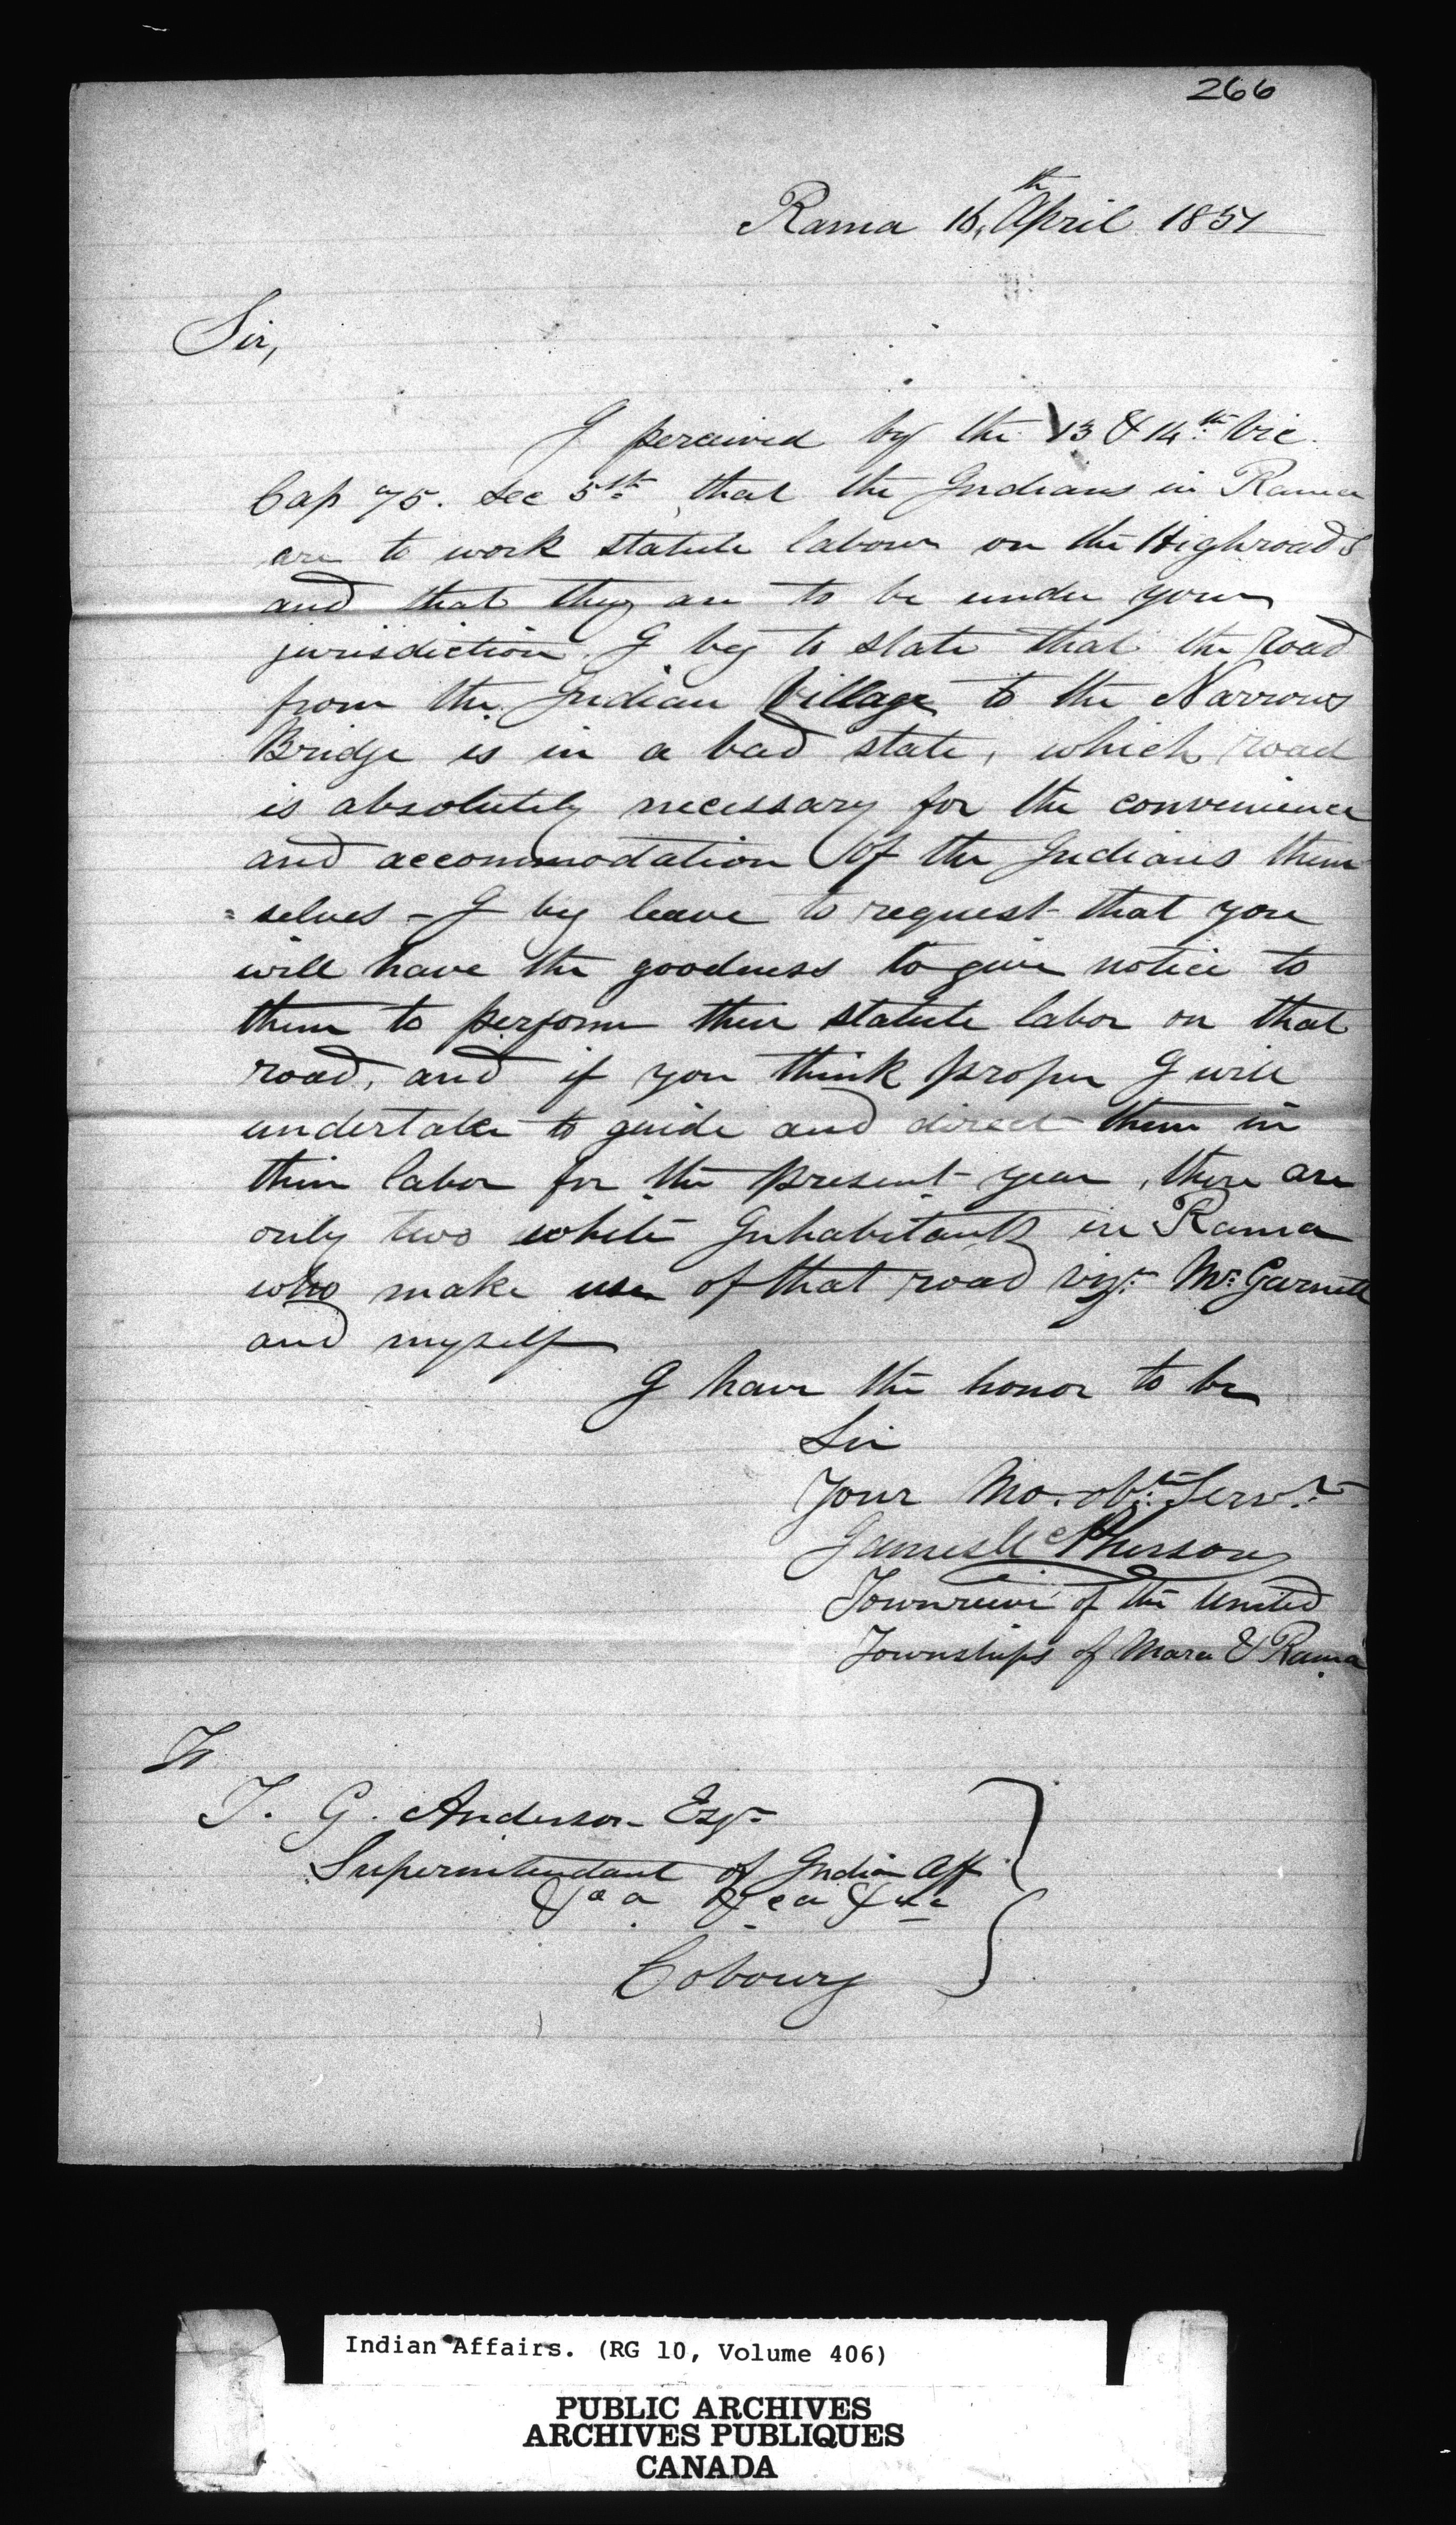 266
Rama 16th April 1851
Sir,
I perceived by the 13 & 14th Vic.
Cap 75. Sec 5th, that the Indians in Rama
are to work statute labour on the Highroads
and that they are to be under your
jurisdiction. I beg to state that the road
from the Indian Village to the Narrows
Bridge is in a bad state, which road
is absolutely necessary for the convenience
and accommodation of the Indians them
=selves - I beg leave to request that you
will have the goodness to give notice to
them to perform their statute labor on that
road, and if you think proper I will
undertake to guide and direct them in
their labor for the present year, there are
only two white Inhabitants in Rama
who make use of that road vizt. Mr. Garnett
and myself
I have the honor to be
Sir
Your Mo. obt. Servt.
James McPherson
Townreeve of the United
Townships of Mara & Rama
To
T. G. Anderson Esqr
Superintendant of Indian Aff
&ca &ca &ca
Cobourg
Indian Affairs. (RG 10, Volume 406)
PUBLIC ARCHIVES
ARCHIVES PUBLIQUES
CANADA